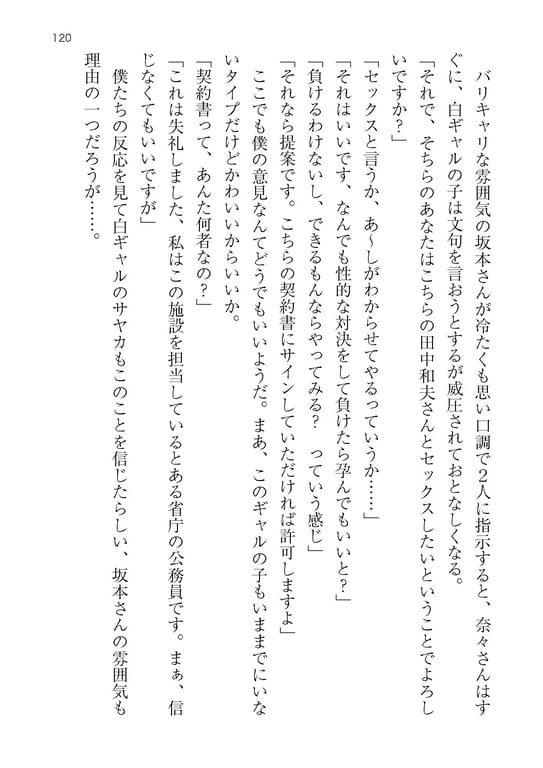 120
バリキャリな雰囲気の坂本さんが冷たくも思い口調で2人に指示すると、奈々さんはす
ぐに、白ギャルの子は文句を言おうとするが威圧されておとなしくなる。
「それで、そちらのあなたはこちらの田中和夫さんとセックスしたいということでよろし
いですか?」
「セックスと言うか、あ〜しがわからせてやるっていうか……」
「それはいいです、なんでも性的な対決をして負けたら孕んでもいいと?」
「負けるわけないし、できるもんならやってみる? っていう感じ」
「それなら提案です。こちらの契約書にサインしていただければ許可しますよ」
ここでも僕の意見なんてどうでもいいようだ。まあ、このギャルの子もいままでにいな
いタイプだけどかわいいからいいか。
「契約書って、あんた何者なの?」
「これは失礼しました、私はこの施設を担当しているとある省庁の公務員です。まぁ、信
じなくてもいいですが」
僕たちの反応を見て白ギャルのサヤカもこのことを信じたらしい、坂本さんの雰囲気も
理由の一つだろうが……。